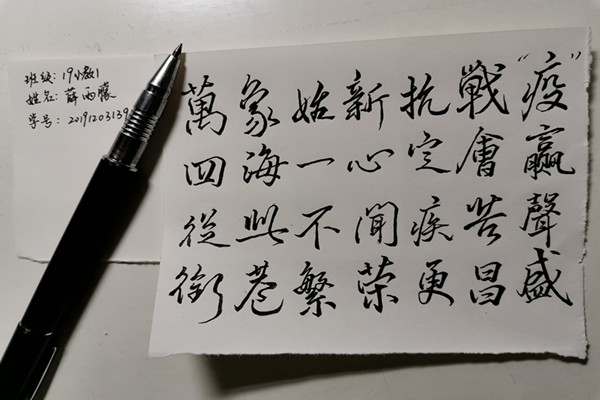 班级：19小教1
姓名：薛雨朦
学号：20191203139
萬象始新抗戰“疫”
四海一心定會贏
從此不聞疾苦聲
街巷繁榮更昌盛